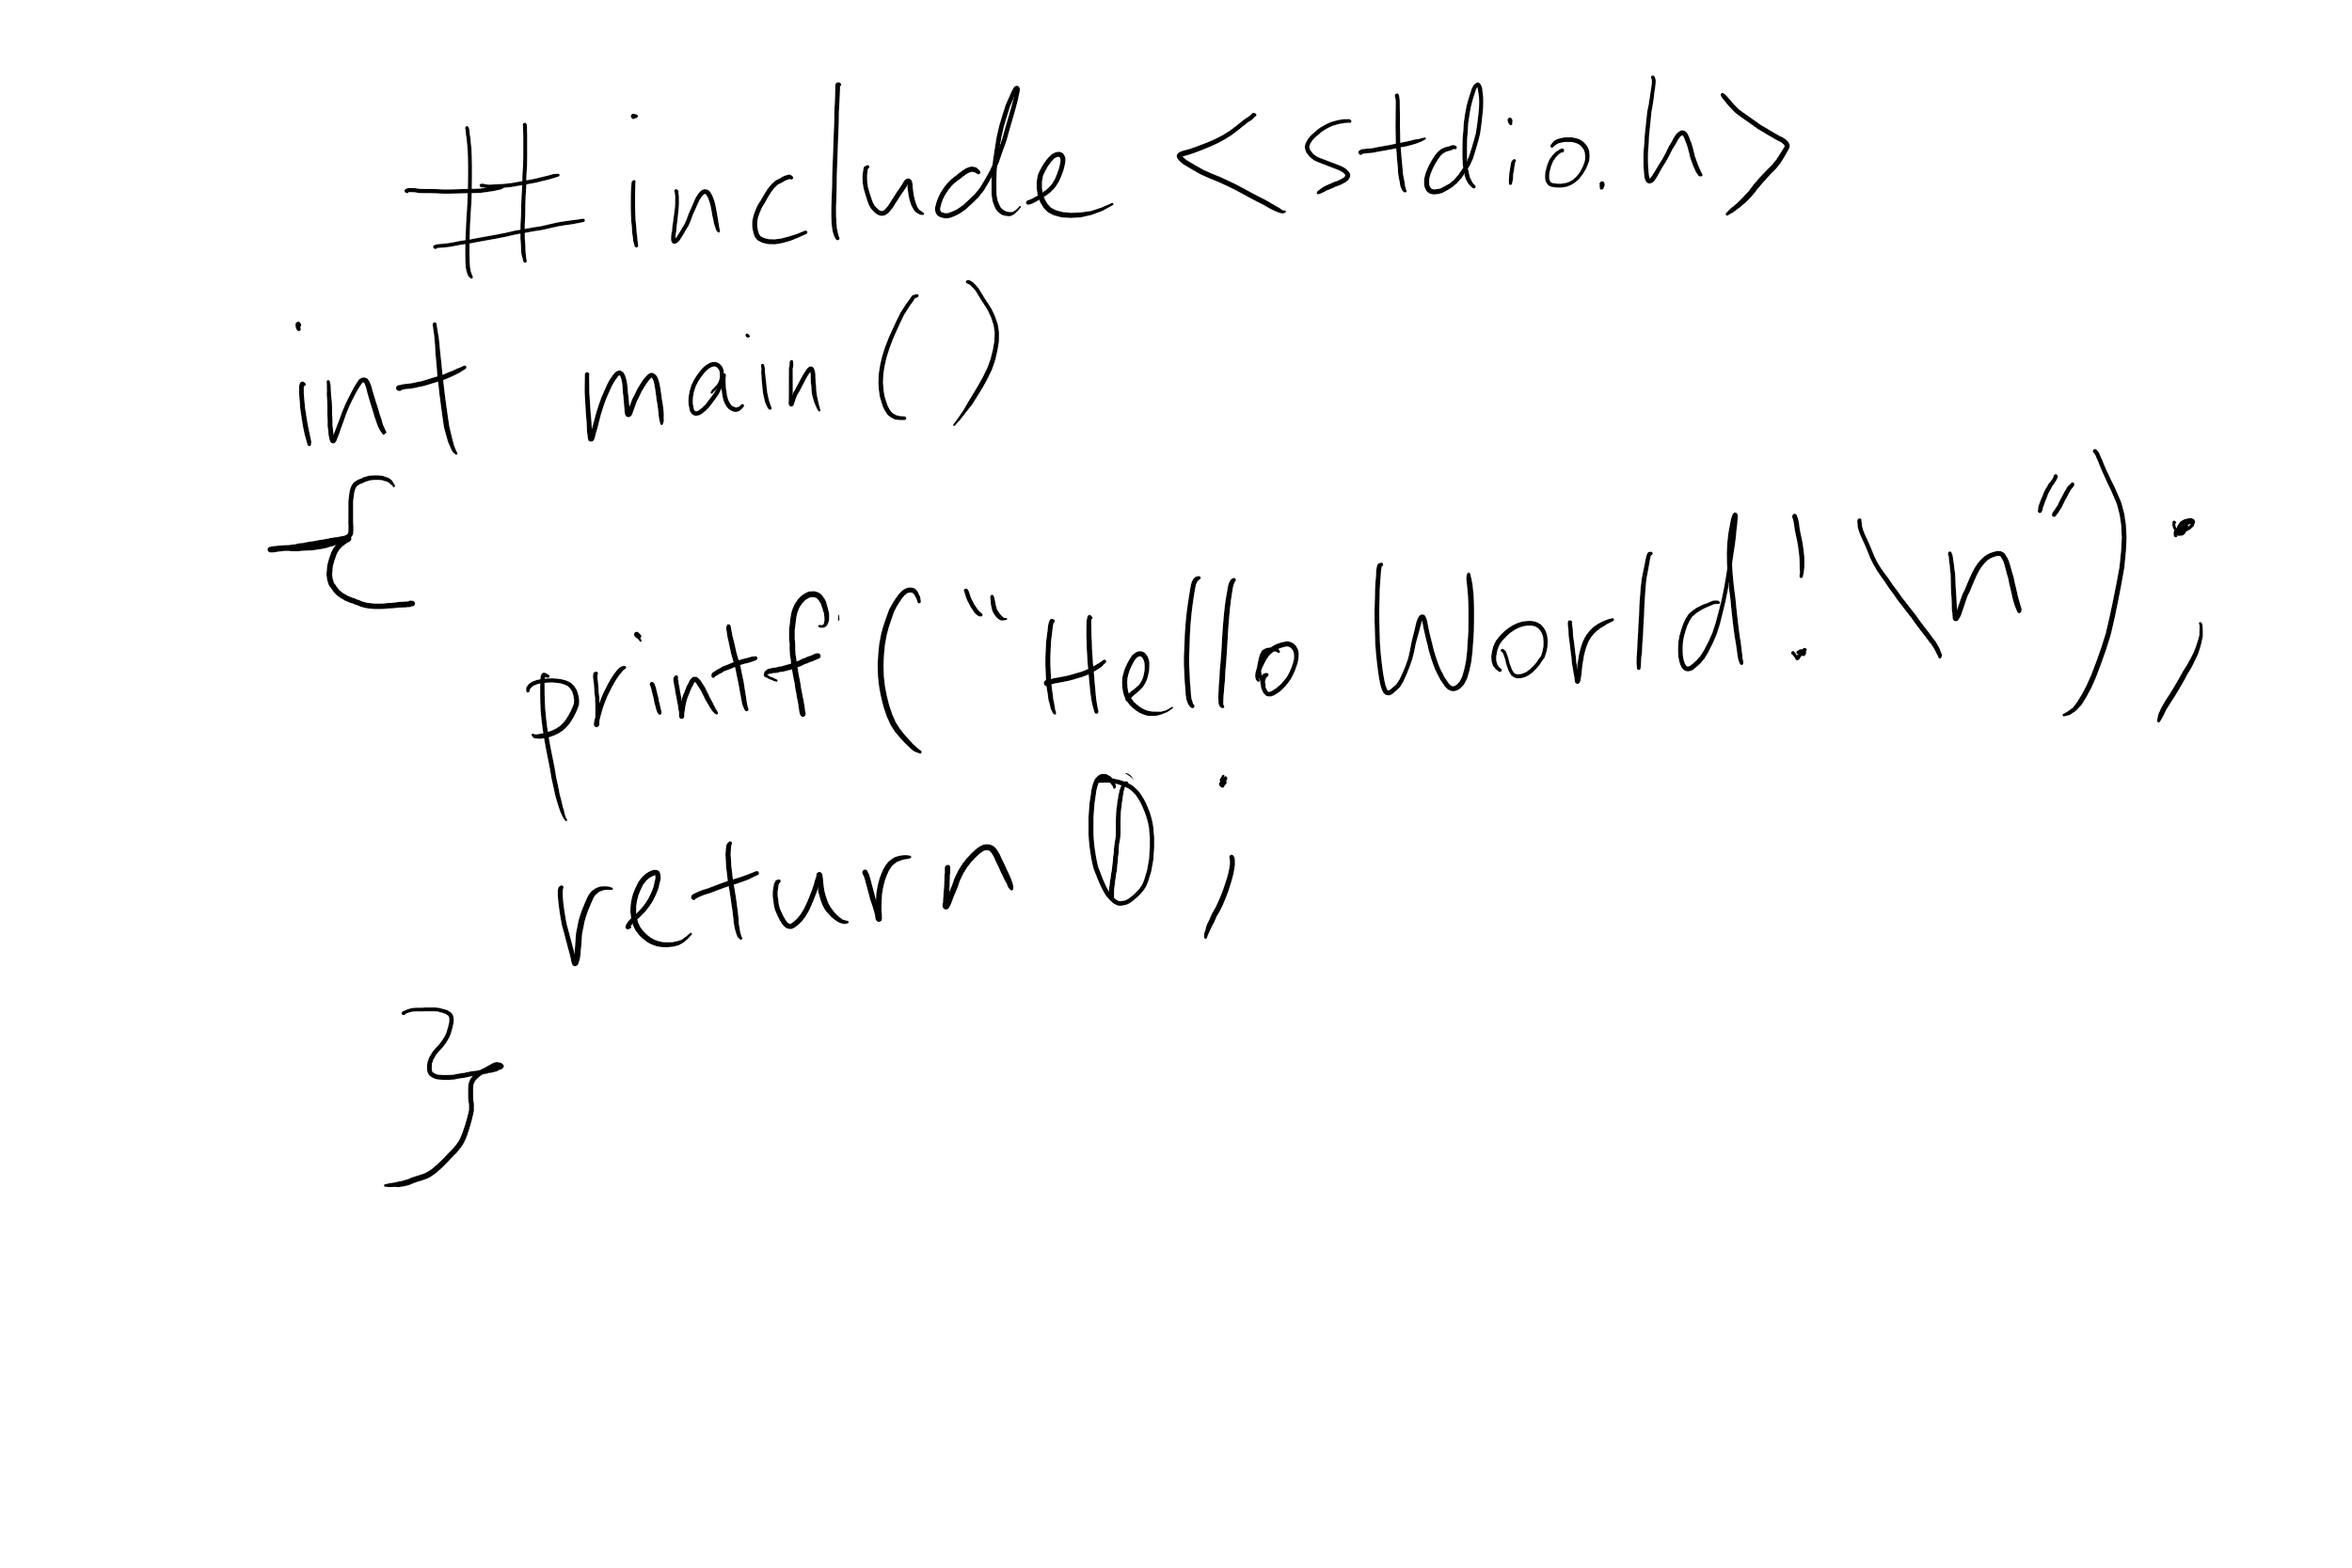 #include <stdio.h>
int main()
{
printf("Hello World!\n");
return 0;
}